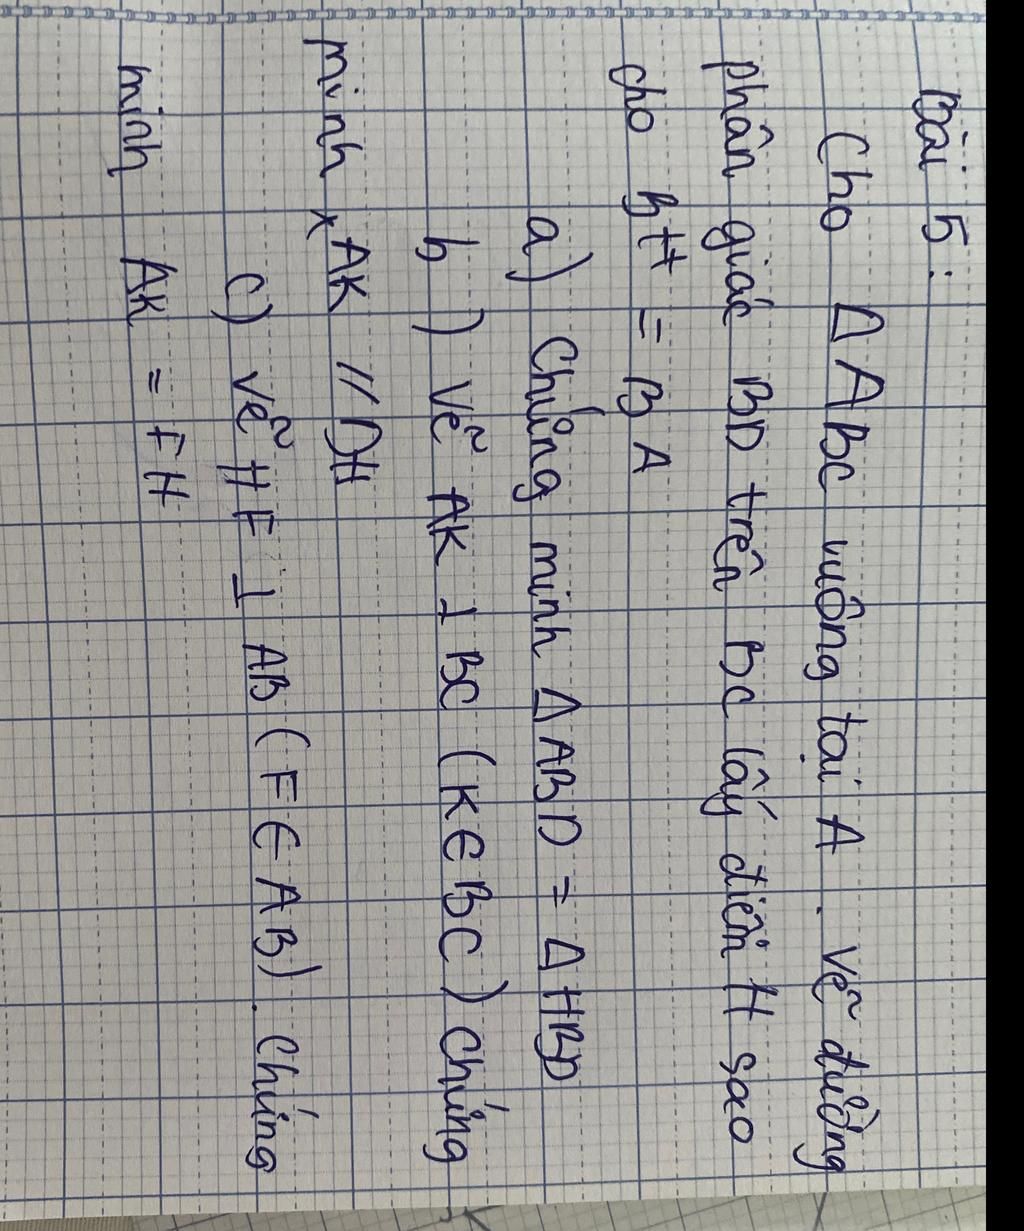 Bài 5:
Cho Δ ABC vuông tại A. vẽ đường
phân giác BD trên BC lấy điểm H sao
cho BH = BA
a) Chứng minh Δ ABD = Δ HBD
b) vẽ AK ⊥ BC (K ∈ BC) chứng
minh AK // DH
c) vẽ HF ⊥ AB (F ∈ AB). Chứng
minh AK = FH